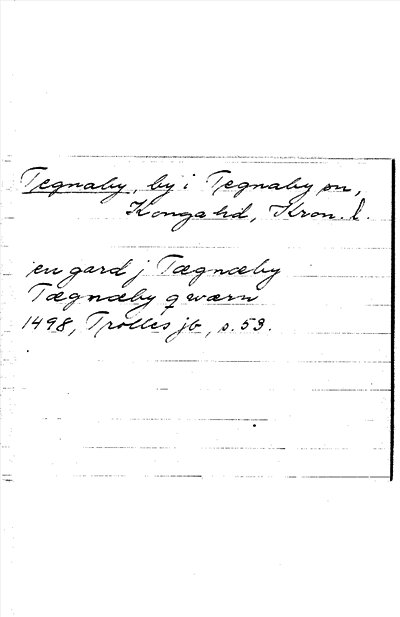 Tegnaby, by i Tegnaby sn,
Konga hd, Kron. l.
en gard j Tægnæby
Tægnæby qwærn
1498, Trolles jb, s. 53.